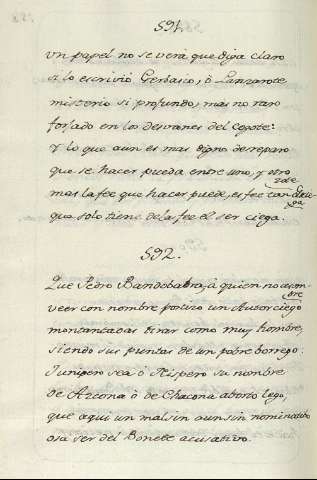 591.
vn papel no se verá que diga claro
si lo escrivió Gerbasco, ò Lanzarote
misterio si profundo, mas no raro
forjado en los desvanes del cogote:
Y lo que aun es mas digno de reparo
que se hacer pueda entre uno, y otro
zote
mas la fee que hacer puede, es fee tan
ga
que solo tiene de la fee el ser ciega.
592.
Que Pedro Bandobabraz, à quien no
bre
veer con nombre postizo un Autor ciego
montantadas tirar como muy hombre,
siendo sus puntas de un pobre borrego:
Junipero sea ò Nispero su nombre
de Azcona ò de Chacona aborto lego,
que aqui un malsin aun sin nominativo
osa ser del Bonete acusativo.